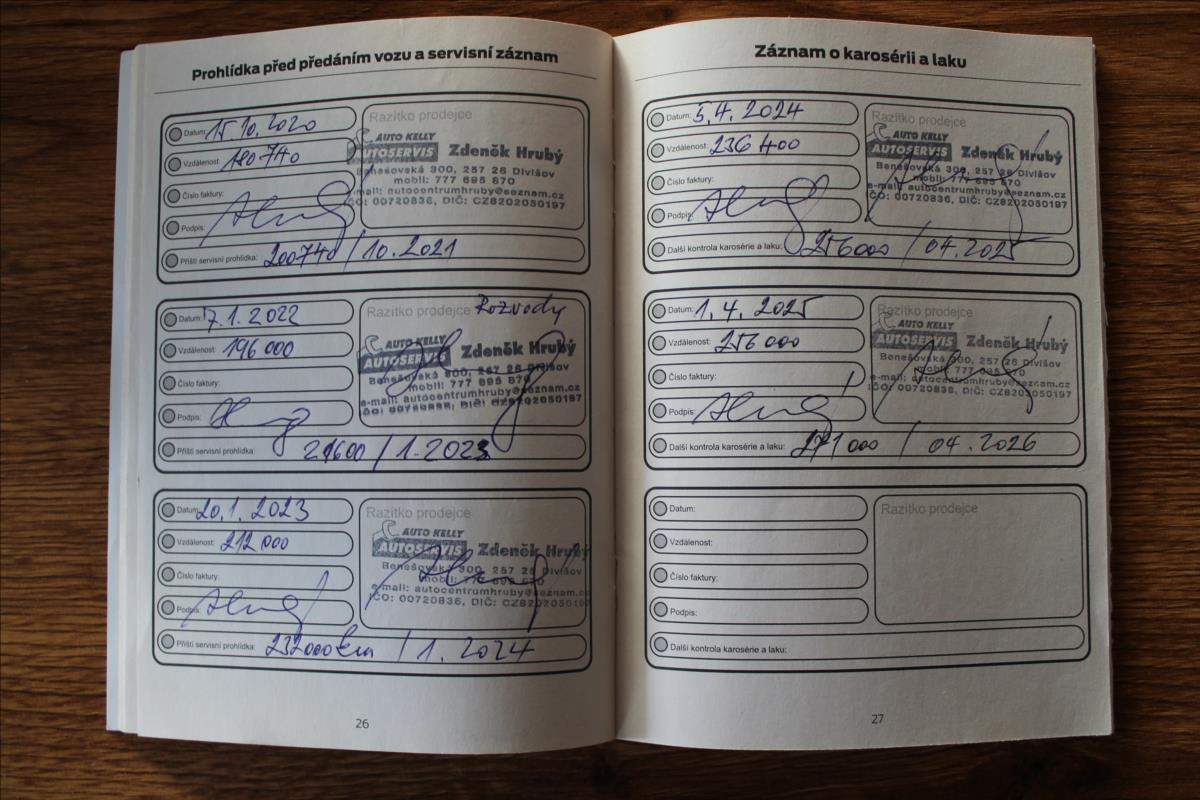 Prohlídka před předáním vozu a servisní záznam
Datum: 15 10. 2020
Vzdálenost: 180740
Číslo faktury:
Podpis:
Příští servisní prohlídka: 200740 / 10. 2021
Razítko prodejce
AUTO KELLY
AUTOSERVIS Zdeněk Hrubý
Benešovská 300, 257 26 Divišov
mobil: 777 695 670
e-mail: autocentrumhruby@seznam.cz
IČO: 00720836, DIČ: CZ8202050197
Datum: 7. 1. 2022
Vzdálenost: 196 000
Číslo faktury:
Podpis:
Příští servisní prohlídka: / 1. 2023
Razítko prodejce Rozvody
AUTO KELLY
AUTOSERVIS Zdeněk Hrubý
Benešovská 300, 257 26 Divišov
mobil: 777 695 670
e-mail: autocentrumhruby@seznam.cz
IČO: 00720836, DIČ: CZ8202050197
Datum: 20. 1. 2023
Vzdálenost: 212 000
Číslo faktury:
Podpis:
Příští servisní prohlídka: 232000 km / 1. 2024
Razítko prodejce
AUTO KELLY
AUTOSERVIS Zdeněk Hrubý
Benešovská 300, 257 26 Divišov
mobil: 777 695 670
e-mail: autocentrumhruby@seznam.cz
IČO: 00720836, DIČ: CZ8202050197
26
Záznam o karosérii a laku
Datum: 5. 4. 2024
Vzdálenost: 236 400
Číslo faktury:
Podpis:
Další kontrola karosérie a laku: 256000 / 04. 2025
Razítko prodejce
AUTO KELLY
AUTOSERVIS Zdeněk Hrubý
Benešovská 300, 257 26 Divišov
mobil: 777 695 670
e-mail: autocentrumhruby@seznam.cz
IČO: 00720836, DIČ: CZ8202050197
Datum: 1. 4. 2025
Vzdálenost: 256 000
Číslo faktury:
Podpis:
Další kontrola karosérie a laku: 271 000 / 04. 2026
Razítko prodejce
AUTO KELLY
AUTOSERVIS Zdeněk Hrubý
Benešovská 300, 257 26 Divišov
mobil: 777 695 670
e-mail: autocentrumhruby@seznam.cz
IČO: 00720836, DIČ: CZ8202050197
Datum:
Vzdálenost:
Číslo faktury:
Podpis:
Další kontrola karosérie a laku:
Razítko prodejce
27